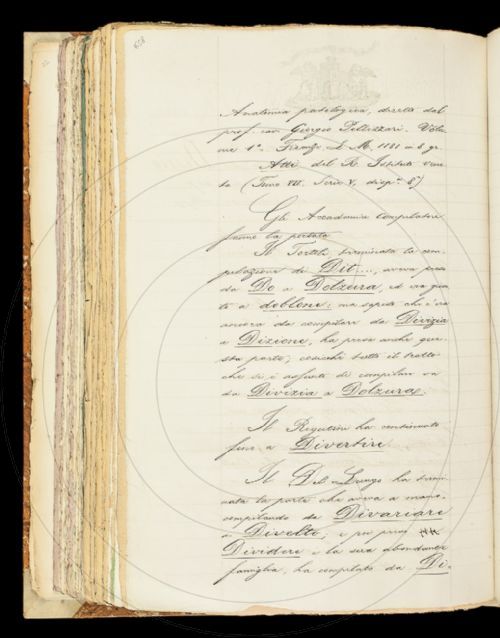 Anatomia patologica, diretta dal
prof. cav. Giorgio Pellizzari. Volu-
me 1º. Firenze, L. M. 1881 in 8. gr.
Atti del R. Istituto vene-
to (Tomo VII. Serie V, disp.ª 8ª)
Gli Accademici Compilatori
fanno la portata
Il Tortoli, terminata la com-
pilazione di Dit...., aveva preso
da Do a Dolzura, ed era giun-
to a doblone; ma saputo che c'era
ancora da compilare da Divizia
a Dizione, ha preso anche que-
sta parte; cosicchè tutto il tratto
che si è assunto di compilare va
da Divizia a Dolzura.
Il Rigutini ha continuato
fino a Divertire.
Il Del Lungo ha termi-
nata la parte che aveva a mano,
compilando da Divariare
a Divelto; e poi preso
Dividere e la sua abbondante
famiglia, ha compilato da Di-